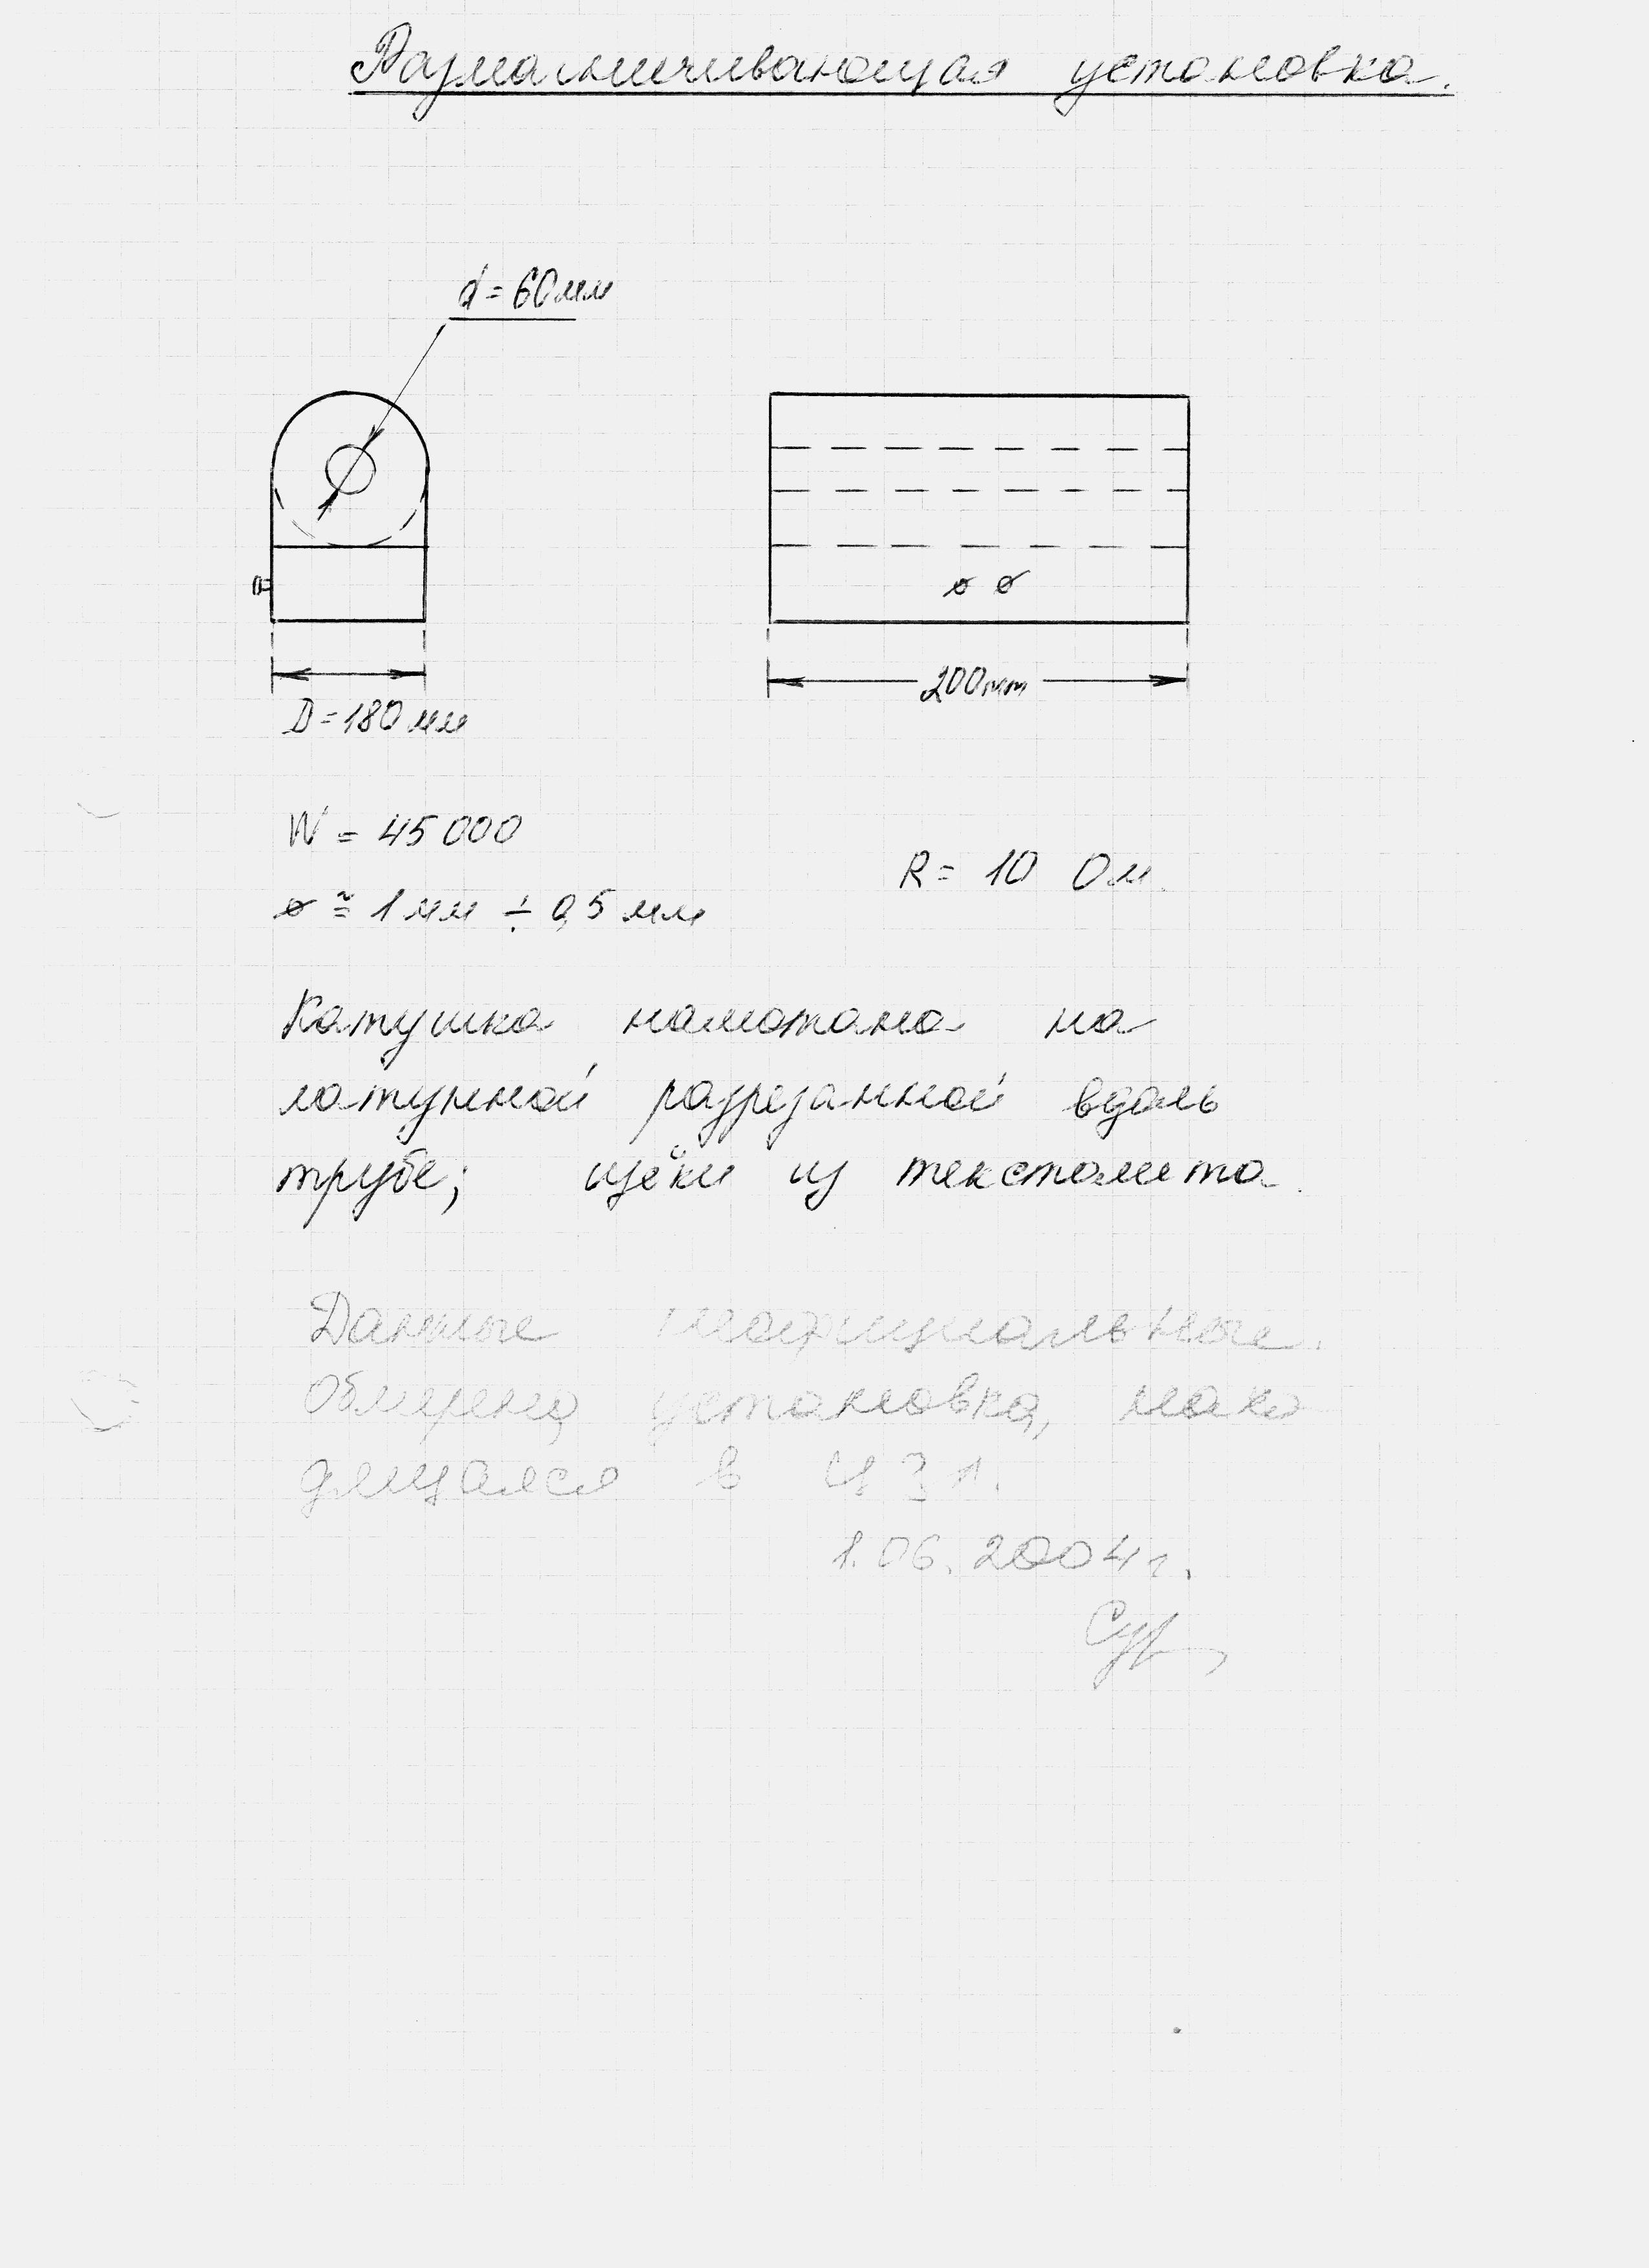 Размагничивающая установка.
d = 60 мм
200 mm
D = 180 мм
W = 45 000
R = 10 Ом.
⌀ ≅ 1 мм ÷ 0,5 мм
Катушка намотана на
латунной разрезанной вдоль
трубе; щёки из текстолита.
Данные неофициальные.
Обмерена установка, нахо
дящаяся в ЦЗЛ.
1.06.2004 г.